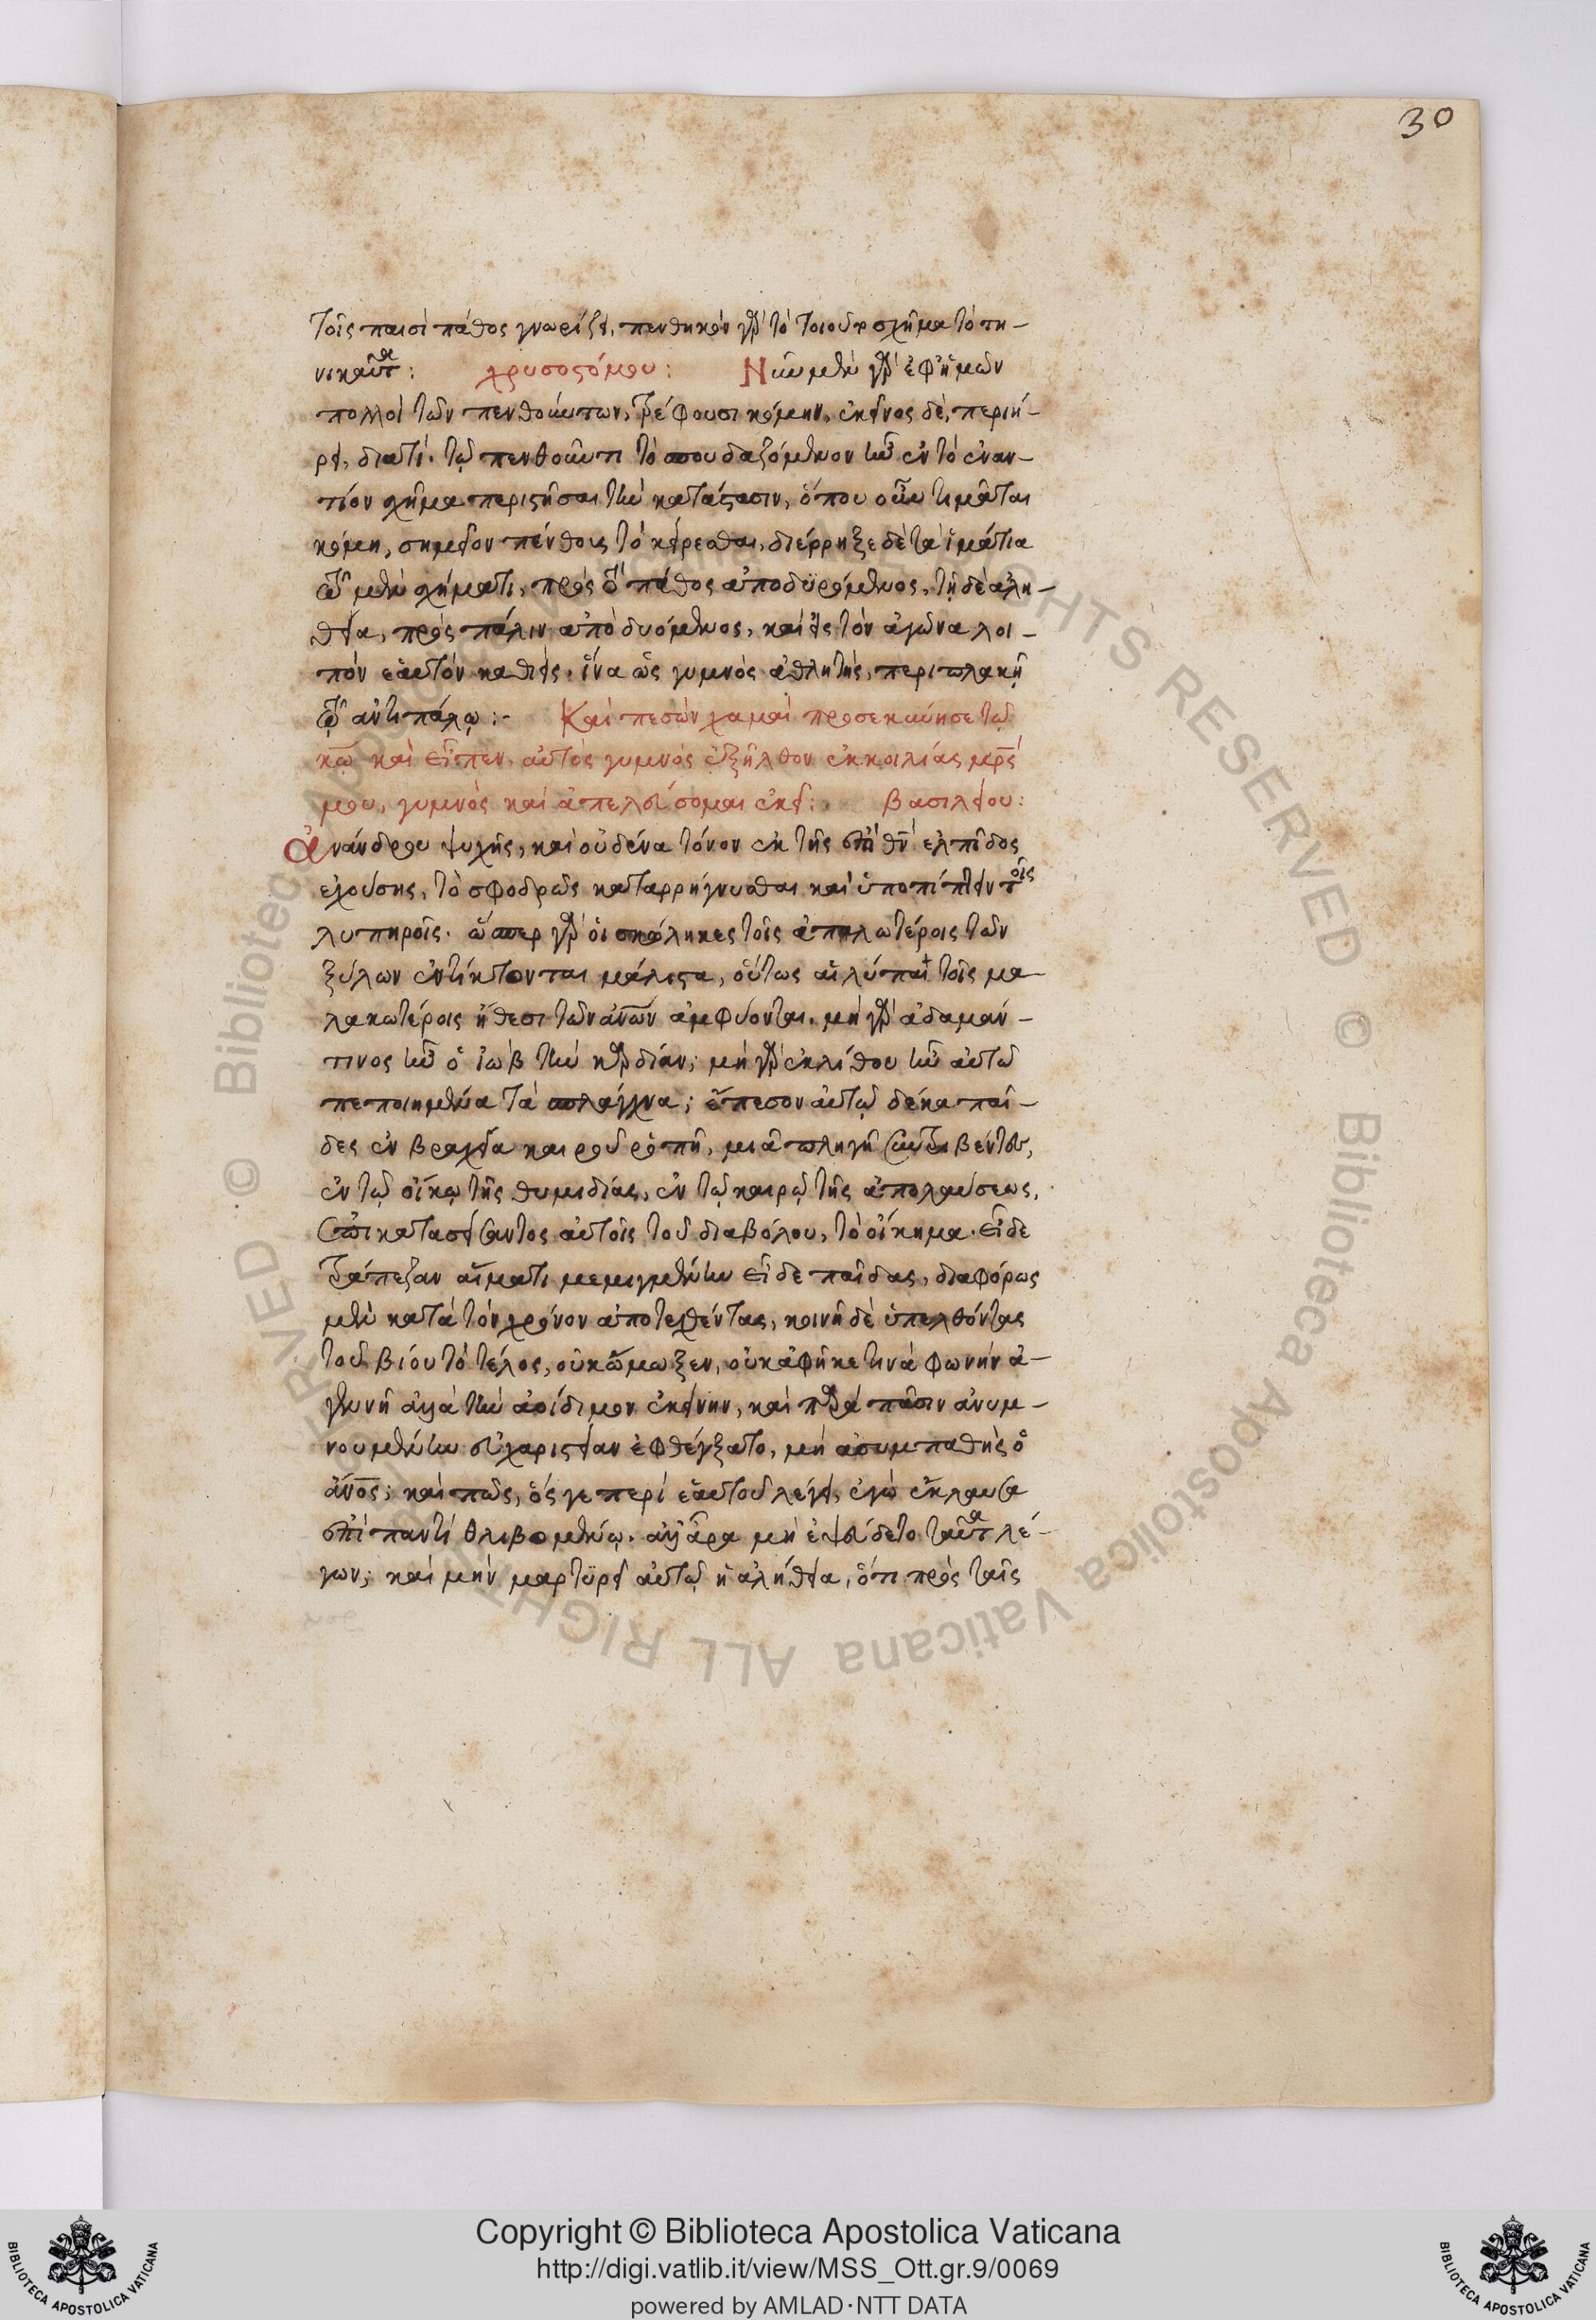 30
τοῖς παισὶ πάθος γνωρίζει, πενθηκὸν γὰρ τὸ τοιοῦτο σχῆμα τὸ τη-
νικαῦτα: χρυσοστόμου: Νῦν μὲν γὰρ ἐφ' ἡμῶν
πολλοὶ τῶν πενθούντων, τρέφουσι κόμην, ἐκεῖνος δὲ, περιή-
ρει, διατί. τῷ πενθοῦντι τὸ σπουδαζόμενον ἦν ἐν τὸ ἐναν-
τίον σχῆμα περιστῆσαι τὴν κατάστασιν, ὅπου οὖν τιμᾶται
κόμη, σημεῖον πένθους τὸ κείρεσθαι, διέρρηξε δὲ τὰ ἱμάτια
τῷ μὲν σχήματι, πρὸς τὸ πάθος ἀποδυρόμενος, τῇ δὲ ἀλη-
θεία, πρὸς πάλιν ἀποδυόμενος, καὶ εἰς τὸν ἀγῶνα λοι-
πὸν ἑαυτὸν καθιεὶς. ἵνα ὡς γυμνὸς ἀθλητὴς, περιπλακῇ
τῷ ἀντιπάλῳ:- Καὶ πεσὼν χαμαὶ προσεκύνησε τῷ
κῷ καὶ εἶπεν. αὐτὸς γυμνὸς ἐξῆλθον ἐκ κοιλίας μρς
μου, γυμνὸς καὶ ἀπελεύσομαι ἐκεῖ: βασιλείου:
ἀνάνδρου ψυχῆς, καὶ οὐδένα τόνον ἐκ τῆς ἐπὶ θν ἐλπίδος
ἐχούσης, τὸ σφοδρῶς καταρρήγνυσθαι καὶ ὑποπίπτειν τοῖς
λυπηροῖς. ὥσπερ γὰρ οἱ σκώληκες τοῖς ἁπαλωτέροις τῶν
ξύλων ἐντίκτονται μάλιστα, οὕτως αἱ λύπαι τοῖς μα-
λακωτέροις ἤθεσι τῶν ἀνων ἐμφύονται. μὴ γὰρ ἀδαμάν-
τινος ἦν ὁ ἰὼβ τὴν καρδίαν; μὴ γὰρ ἐκ λίθου ἦν αὐτῶ
πεποιημένα τὰ σπλάγχνα; ἔπεσον αὐτῷ δέκα παῖ-
δες ἐν βραχεία καιροῦ ῥοπῇ, μιᾶ πληγῇ συντριβέντες,
ἐν τῷ οἴκῳ τῆς θυμιδίας, ἐν τῷ καιρῷ τῆς ἀπολαύσεως,
ἐπικατασείσαντος αὐτοῖς τοῦ διαβόλου, τὸ οἴκημα. εἶδε
τράπεζαν αἵματι μεμιγμένην εἶδε παῖδας, διαφόρως
μὲν κατὰ τὸν χρόνον ἀποτεχθέντας, κοινῇ δὲ ὑπελθόντας
τοῦ βίου τὸ τέλος, οὐκ ᾤμωξεν, οὐκ ἀφῆκε τινὰ φωνὴν ἀ-
γεννῆ ἀλλὰ τὴν ἀοίδιμον ἐκείνην, καὶ παρὰ πᾶσιν ἀνυμ-
νουμένην εὐχαριστείαν ἐφθέγξατο, μὴ ἀσυμπαθὴς ὁ
ἀνος; καὶ πῶς, ὅς γε περὶ ἑαυτοῦ λέγει, ἐγὼ ἔκλαυσα
ἐπὶ παντὶ θλιβομένῳ. ἀλλ' ἆρα μὴ ἐψεύδετο ταῦτα λέ-
γων; καὶ μὴν μαρτυρεῖ αὐτῷ ἡ ἀλήθεια, ὅτι πρὸς ταῖς
Copyright © Biblioteca Apostolica Vaticana
http://digi.vatlib.it/view/MSS_Ott.gr.9/0069
powered by AMLAD·NTT DATA